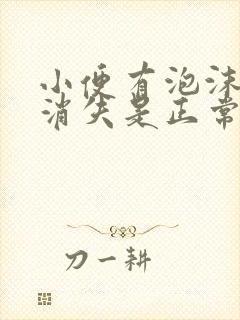 小便有泡沫
消失是正常
刀一耕